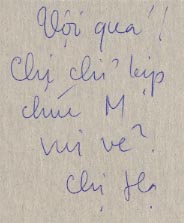 Vội quá!!
Chị chỉ kịp
chúc M
vui vẻ?
Chị Hạ